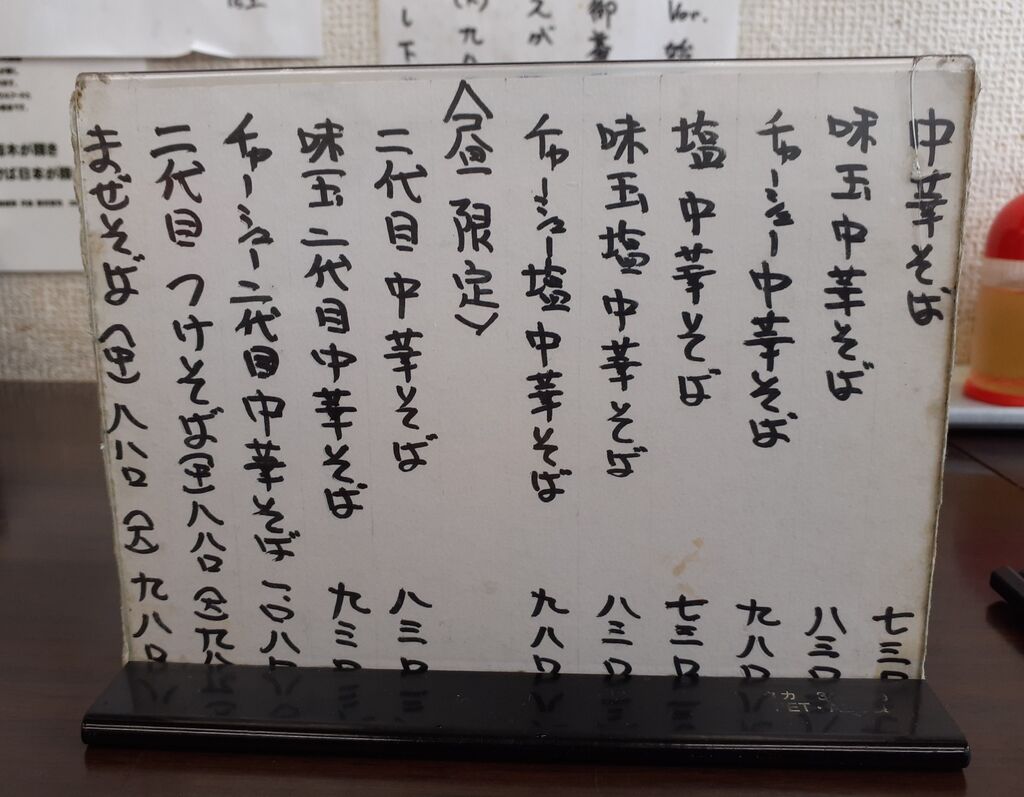 中華そば 七三〇
味玉中華そば 八三〇
チャーシュー中華そば 九八〇
塩中華そば 七三〇
味玉塩中華そば 八三〇
チャーシュー塩中華そば 九八〇
〈昼限定〉
二代目中華そば 八三〇
味玉二代目中華そば 九三〇
チャーシュー二代目中華そば 一〇八〇
二代目つけそば(中)八八〇(大)九八
まぜそば(中)八八〇(大)九八〇
Ver. 始